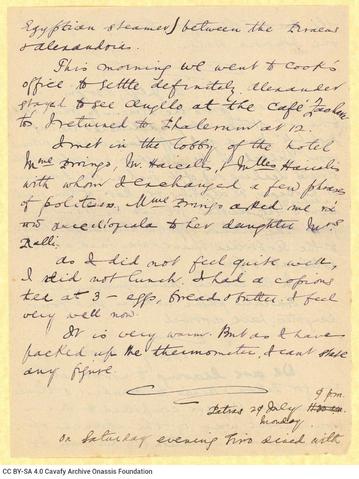 Egyptian steamer) between the Piraeus
& Alexandria.
This morning we went to Cook's
office to settle definitely. Alexander
stayed to see Anyllo at the Café Zacha
to's. I returned to Phalerum at 12.
I met in the lobby of the hotel
Mme Dringo, Mr. Haicalis, & Mlles Haicalis
with whom I exchanged a few phrases
of politeness. Mme Dringo asked me νὰ
to her daughter Mrs
Ralli.
As I did not feel quite well,
I did not lunch. I had a copious
tea at 3 – eggs, bread & butter. I feel
very well now.
It is very warm. But as I have
packed up the thermometer, I cant state
any figure.
9 pm.
Patras 29 July
Monday
On Saturday evening dined with
CC BY-SA 4.0 Cavafy Archive Onassis Foundation